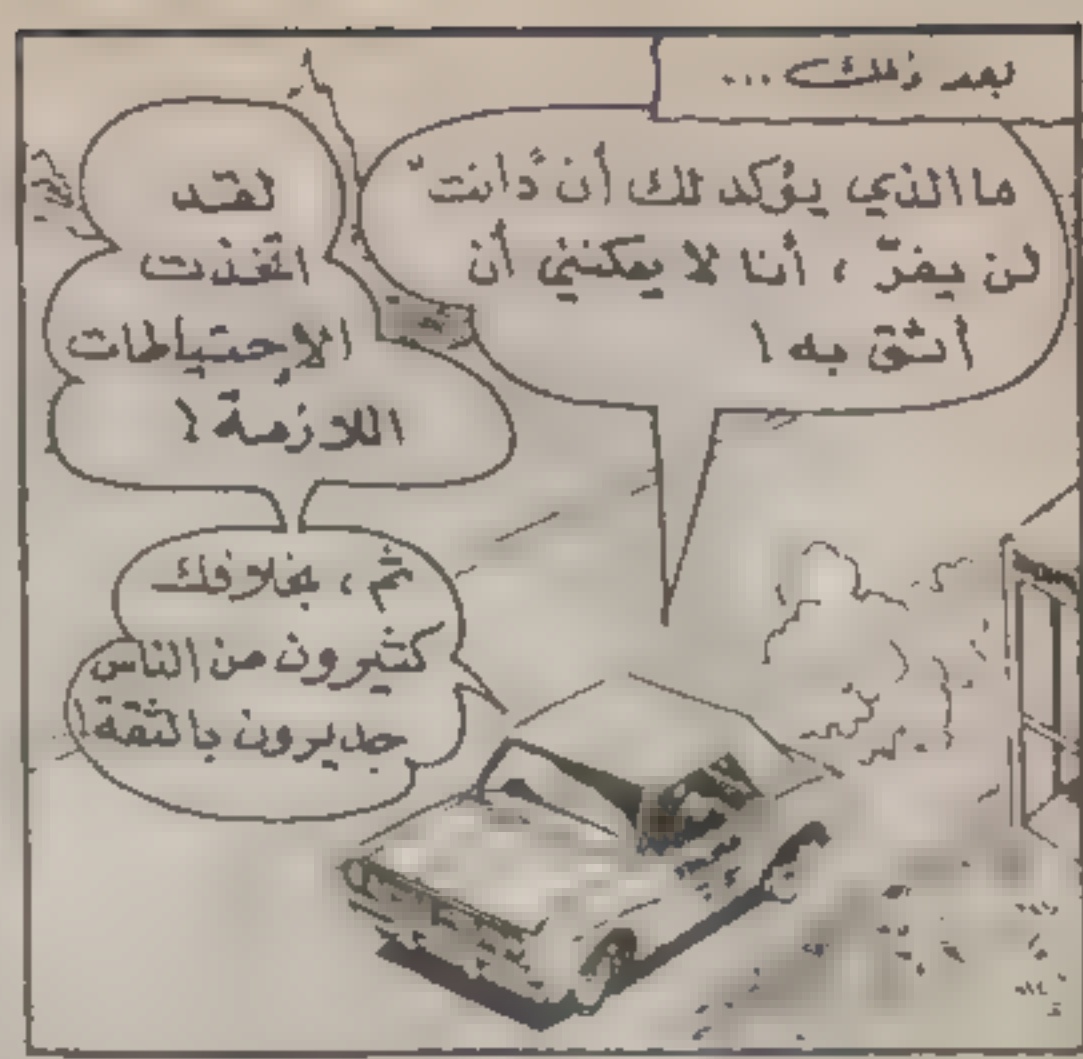 بعد ذلك ...
ما الذي يؤكد لك أن "دانت"
لن يفرّ ، أنا لا يمكنني أن
أثق به !
لقد
اتخذت
الإحتياطات
اللازمة !
ثم ، بخلافك
كثيرون من الناس
جديرون بالثقة !